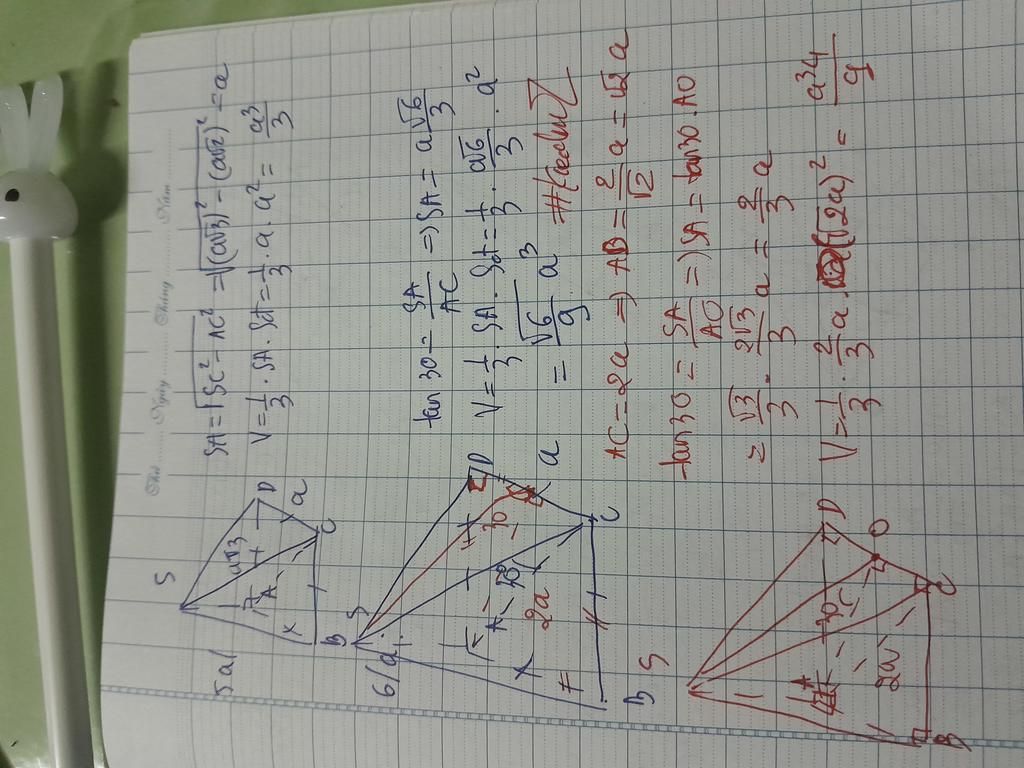 Thứ ........ Ngày ........ Tháng ........ Năm ........
5a/
S
a√3
A
D
a
B
C
SA = √(SC² - AC²) = √((a√3)² - (a√2)²) = a
V = 1/3 . SA . Sđ = 1/3 . a . a² = a³/3
6/a/
S
A
30
D
2a
a
B
C
tan 30 = SA/AC => SA = a√6/3
V = 1/3 . SA . Sđ = 1/3 . a√6/3 . a²
= √6/9 a³
AC = 2a => AB = 2/√2 a = √2 a
S
A
30
D
O
2a
B
C
tan 30 = SA/AO => SA = tan 30 . AO
= √3/3 . 2√3/3 a = 2/3 a
V = 1/3 . 2/3 a . (√2a)² = a³4/9